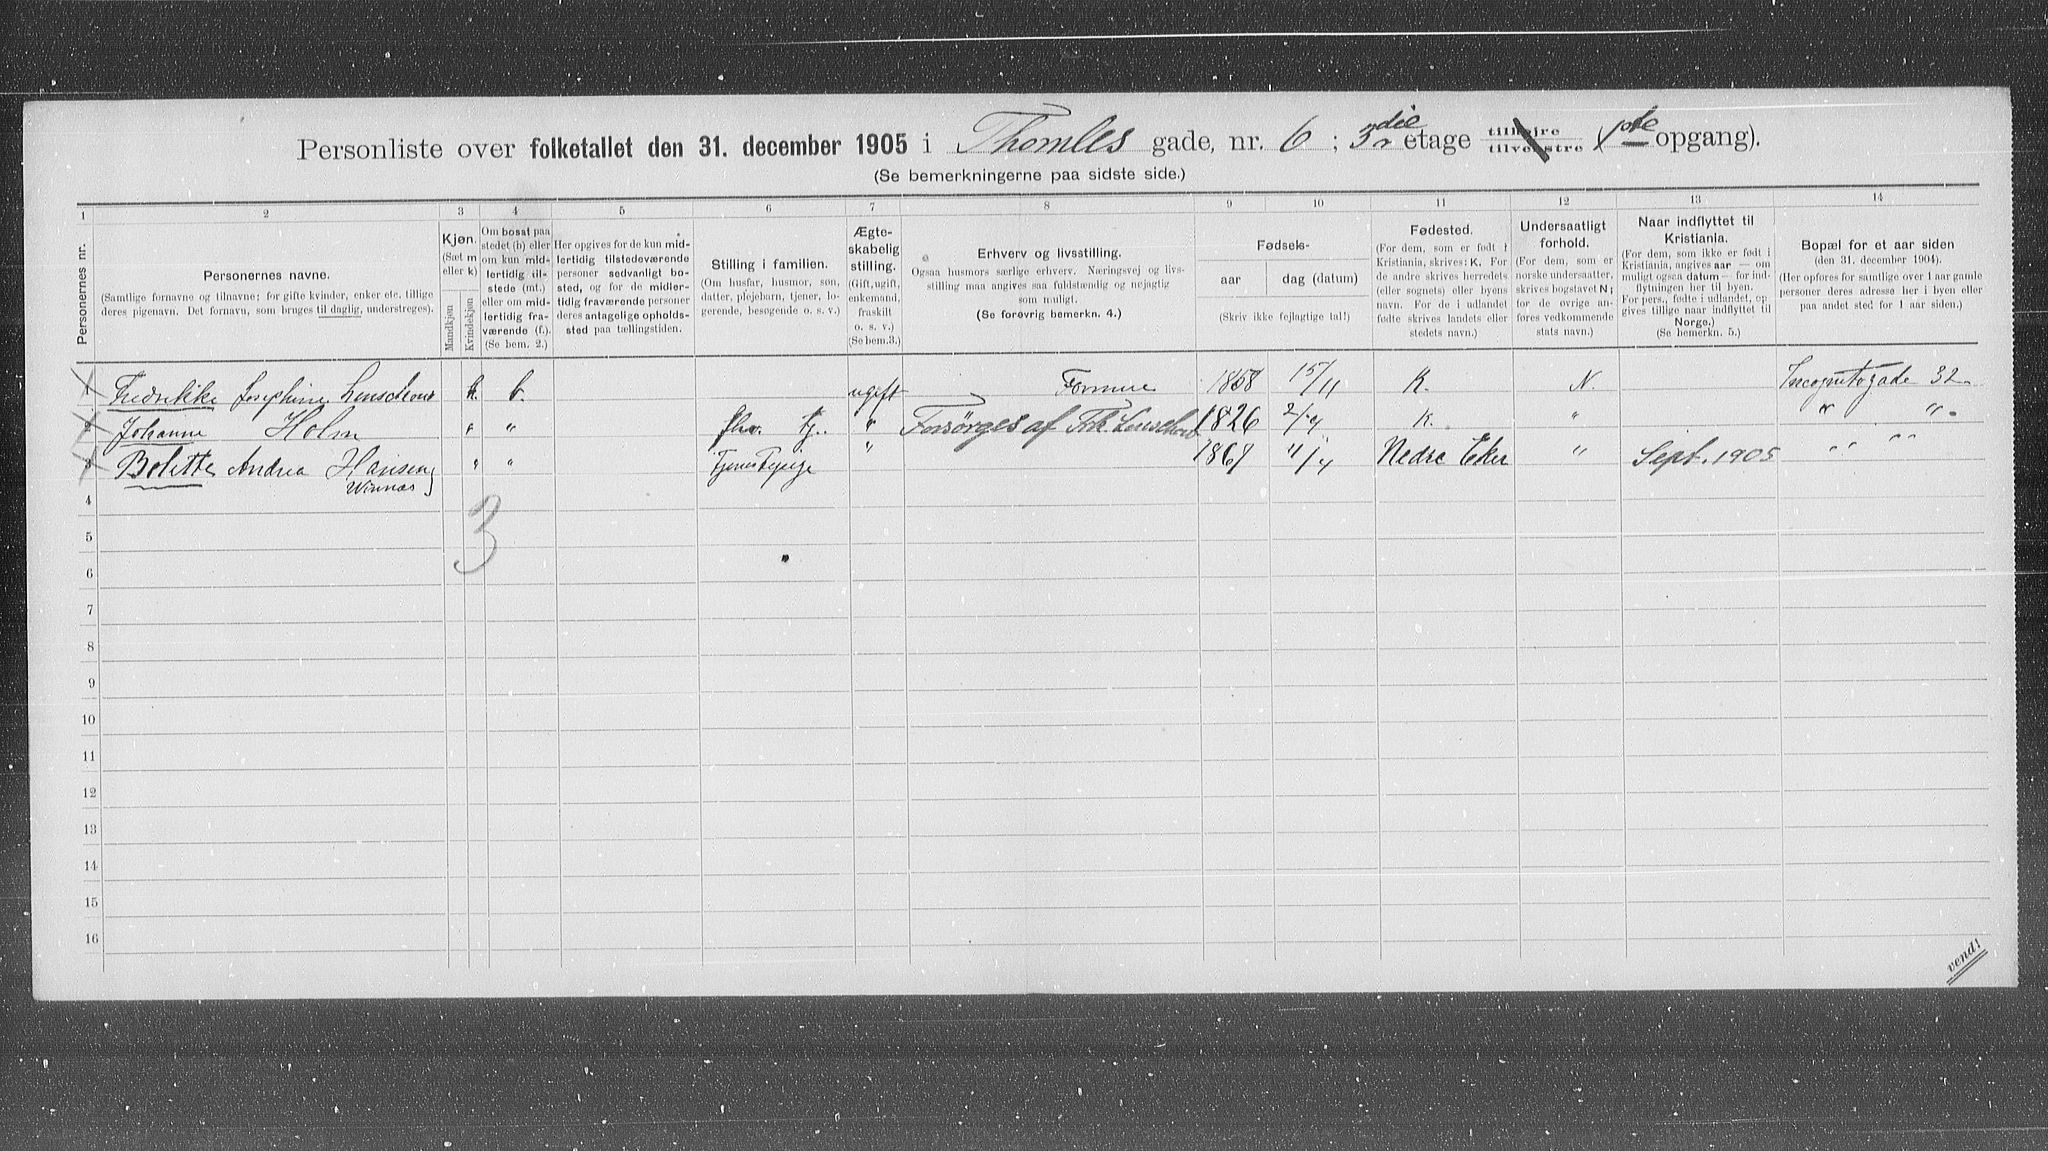 Personliste over folketallet den 31. december 1905 i Thomles gade, nr. 6 ; 3die etage tilhøire tilvenstre 1ste opgang).
(Se bemerkningerne paa sidste side.)
1 2 3 4 5 6 7 8 9 10 11 12 13 14
Personernes nr.
Personernes navne.
(Samtlige fornavne og tilnavne; for gifte kvinder, enker etc. tillige
deres pigenavn. Det fornavn, som bruges til daglig, understreges).
Kjøn.
(Sæt m
eller k)
Mandkjøn
Kvindekjøn
Om bosat paa
stedet (b) eller
om kun mid-
lertidig til-
stede (mt.)
eller om mid-
lertidig fra-
værende (f.).
(Se bem. 2.)
Her opgives for de kun mid-
lertidig tilstedeværende
personer sedvanligt bo-
sted, og for de midler-
tidig fraværende personer
deres antagelige opholds-
sted paa tællingstiden.
Stilling i familien.
(Om husfar, husmor, søn,
datter, plejebarn, tjener, lo-
gerende, besøgende o. s. v.)
Ægte-
skabelig
stilling.
(Gift, ugift,
enkemand,
fraskilt
o. s. v.)
(Se bem. 3.)
Erhverv og livsstilling.
Ogsaa husmors særlige erhverv. Næringsvej og livs-
stilling maa angives saa fuldstændig og nejagtig
som muligt.
(Se forøvrig bemerkn. 4.)
Fødsels-
aar
dag (datum)
(Skriv ikke fejlagtige tal!)
Fødested.
(For dem, som er født i
Kristiania, skrives: K. For
de andre skrives herredets
(eller sognets) eller byens
navn. For de i udlandet
fødte skrives landets eller
stedets navn.)
Undersaatligt
forhold.
(For dem, som er
norske undersaatter,
skrives bogstavet N;
for de øvrige an-
føres vedkommende
stats navn.)
Naar indflyttet til
Kristiania.
(For dem, som ikke er født i
Kristiania, angives aar — om
muligt ogsaa datum — for ind-
flytningen her til byen.
For pers., fødte i udlandet, op-
gives tillige naar indflyttet til
Norge.)
(Se bemerkn. 5.)
Bopæl for et aar siden
(den 31. december 1904).
(Her opføres for samtlige over 1 aar gamle
personer deres adresse her i byen eller
paa andet sted for 1 aar siden.)
1 Fredrikke Josephine k. b. ugift Formue 1858 15/11 K. N. Incognitogade 32
2 Johanne Holm " " fhv. tj. " Forsørges af Frk. 1826 2/4 K. " " "
3 Bolette Andrea Hansen " " Tjenestepige " 1867 11/4 Nedre Eker " Sept. 1905 " " "
Winnæs
4
3
5
6
7
8
9
10
11
12
13
14
15
16
vend!